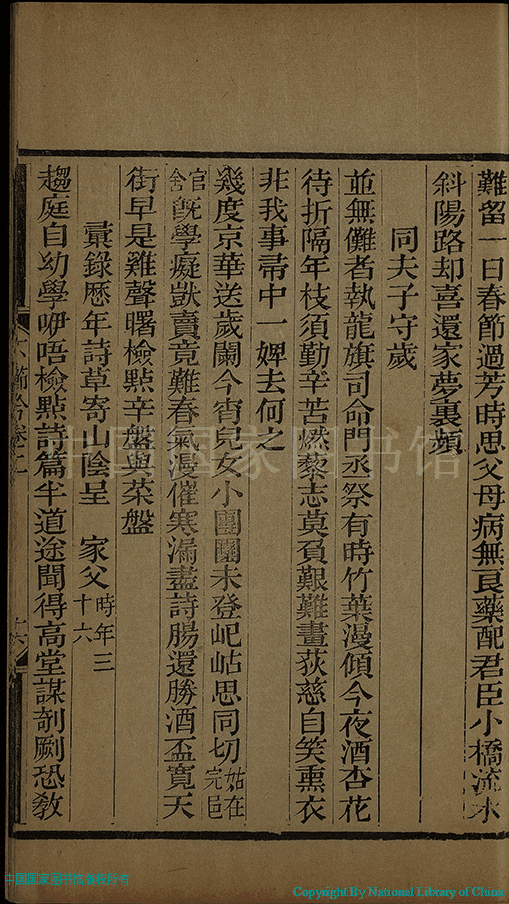 難留一日春節過芳時思父母病無良藥配君臣小橋流水
斜陽路却喜還家夢裏頻
同夫子守歲
並無儺者執龍旗司命門丞祭有時竹葉漫傾今夜酒杏花
待折隔年枝須勤辛苦燃藜志莫負艱難畫荻慈自笑熏衣
非我事帚中一婢去何之
幾度京華送歲闌今宵兒女小團圞未登屺岵思同切姑在完邑
官舍旣學癡獃賣竟難春氣漫催寒漏盡詩腸還勝酒盃寬天
街早是雞聲曙檢點辛盤與菜盤
彚錄歷年詩草寄山陰呈 家父時年三十六
趨庭自幼學咿唔檢點詩篇半道途聞得高堂謀剞劂恐敎
吟卷二
中国国家图书馆
中国国家图书馆版权所有
Copyright By National Library of China